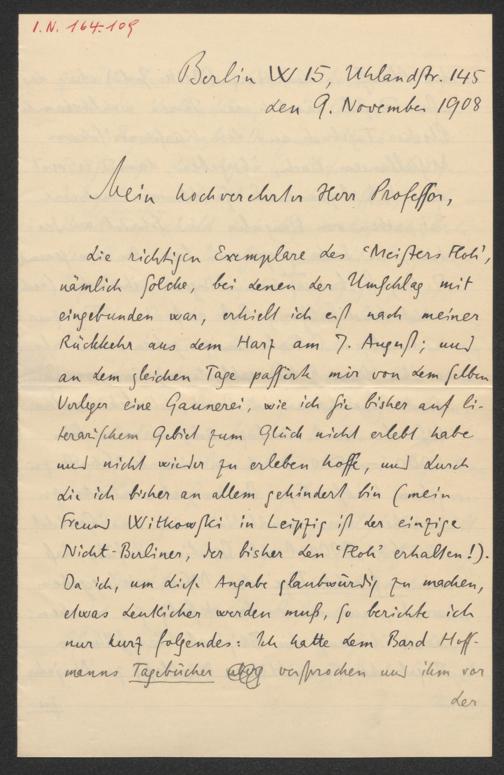 I.N. 164.109
Berlin W 15, Uhlandstr. 145
den 9. November 1908
Mein hochverehrter Herr Professor,
die richtigen Exemplare des 'Meisters Floh',
nämlich solche, bei denen der Umschlag mit
eingebunden war, erhielt ich erst nach meiner
Rückkehr aus dem Harz am 7. August; und
an dem gleichen Tage passirte mir von dem selben
Verleger eine Gaunerei, wie ich sie bisher auf li-
terarischem Gebiet zum Glück nicht erlebt habe
und nicht wieder zu erleben hoffe, und durch
die ich bisher an allem gehindert bin (mein
Freund Witkowski in Leipzig ist der einzige
Nicht-Berliner, der bisher den 'Floh' erhalten!).
Da ich, um diese Angabe glaubwürdig zu machen,
etwas deutlicher werden muß, so berichte ich
nur kurz folgendes: Ich hatte dem Bard Hoff-
manns Tagebücher versprochen und ihm vor
der